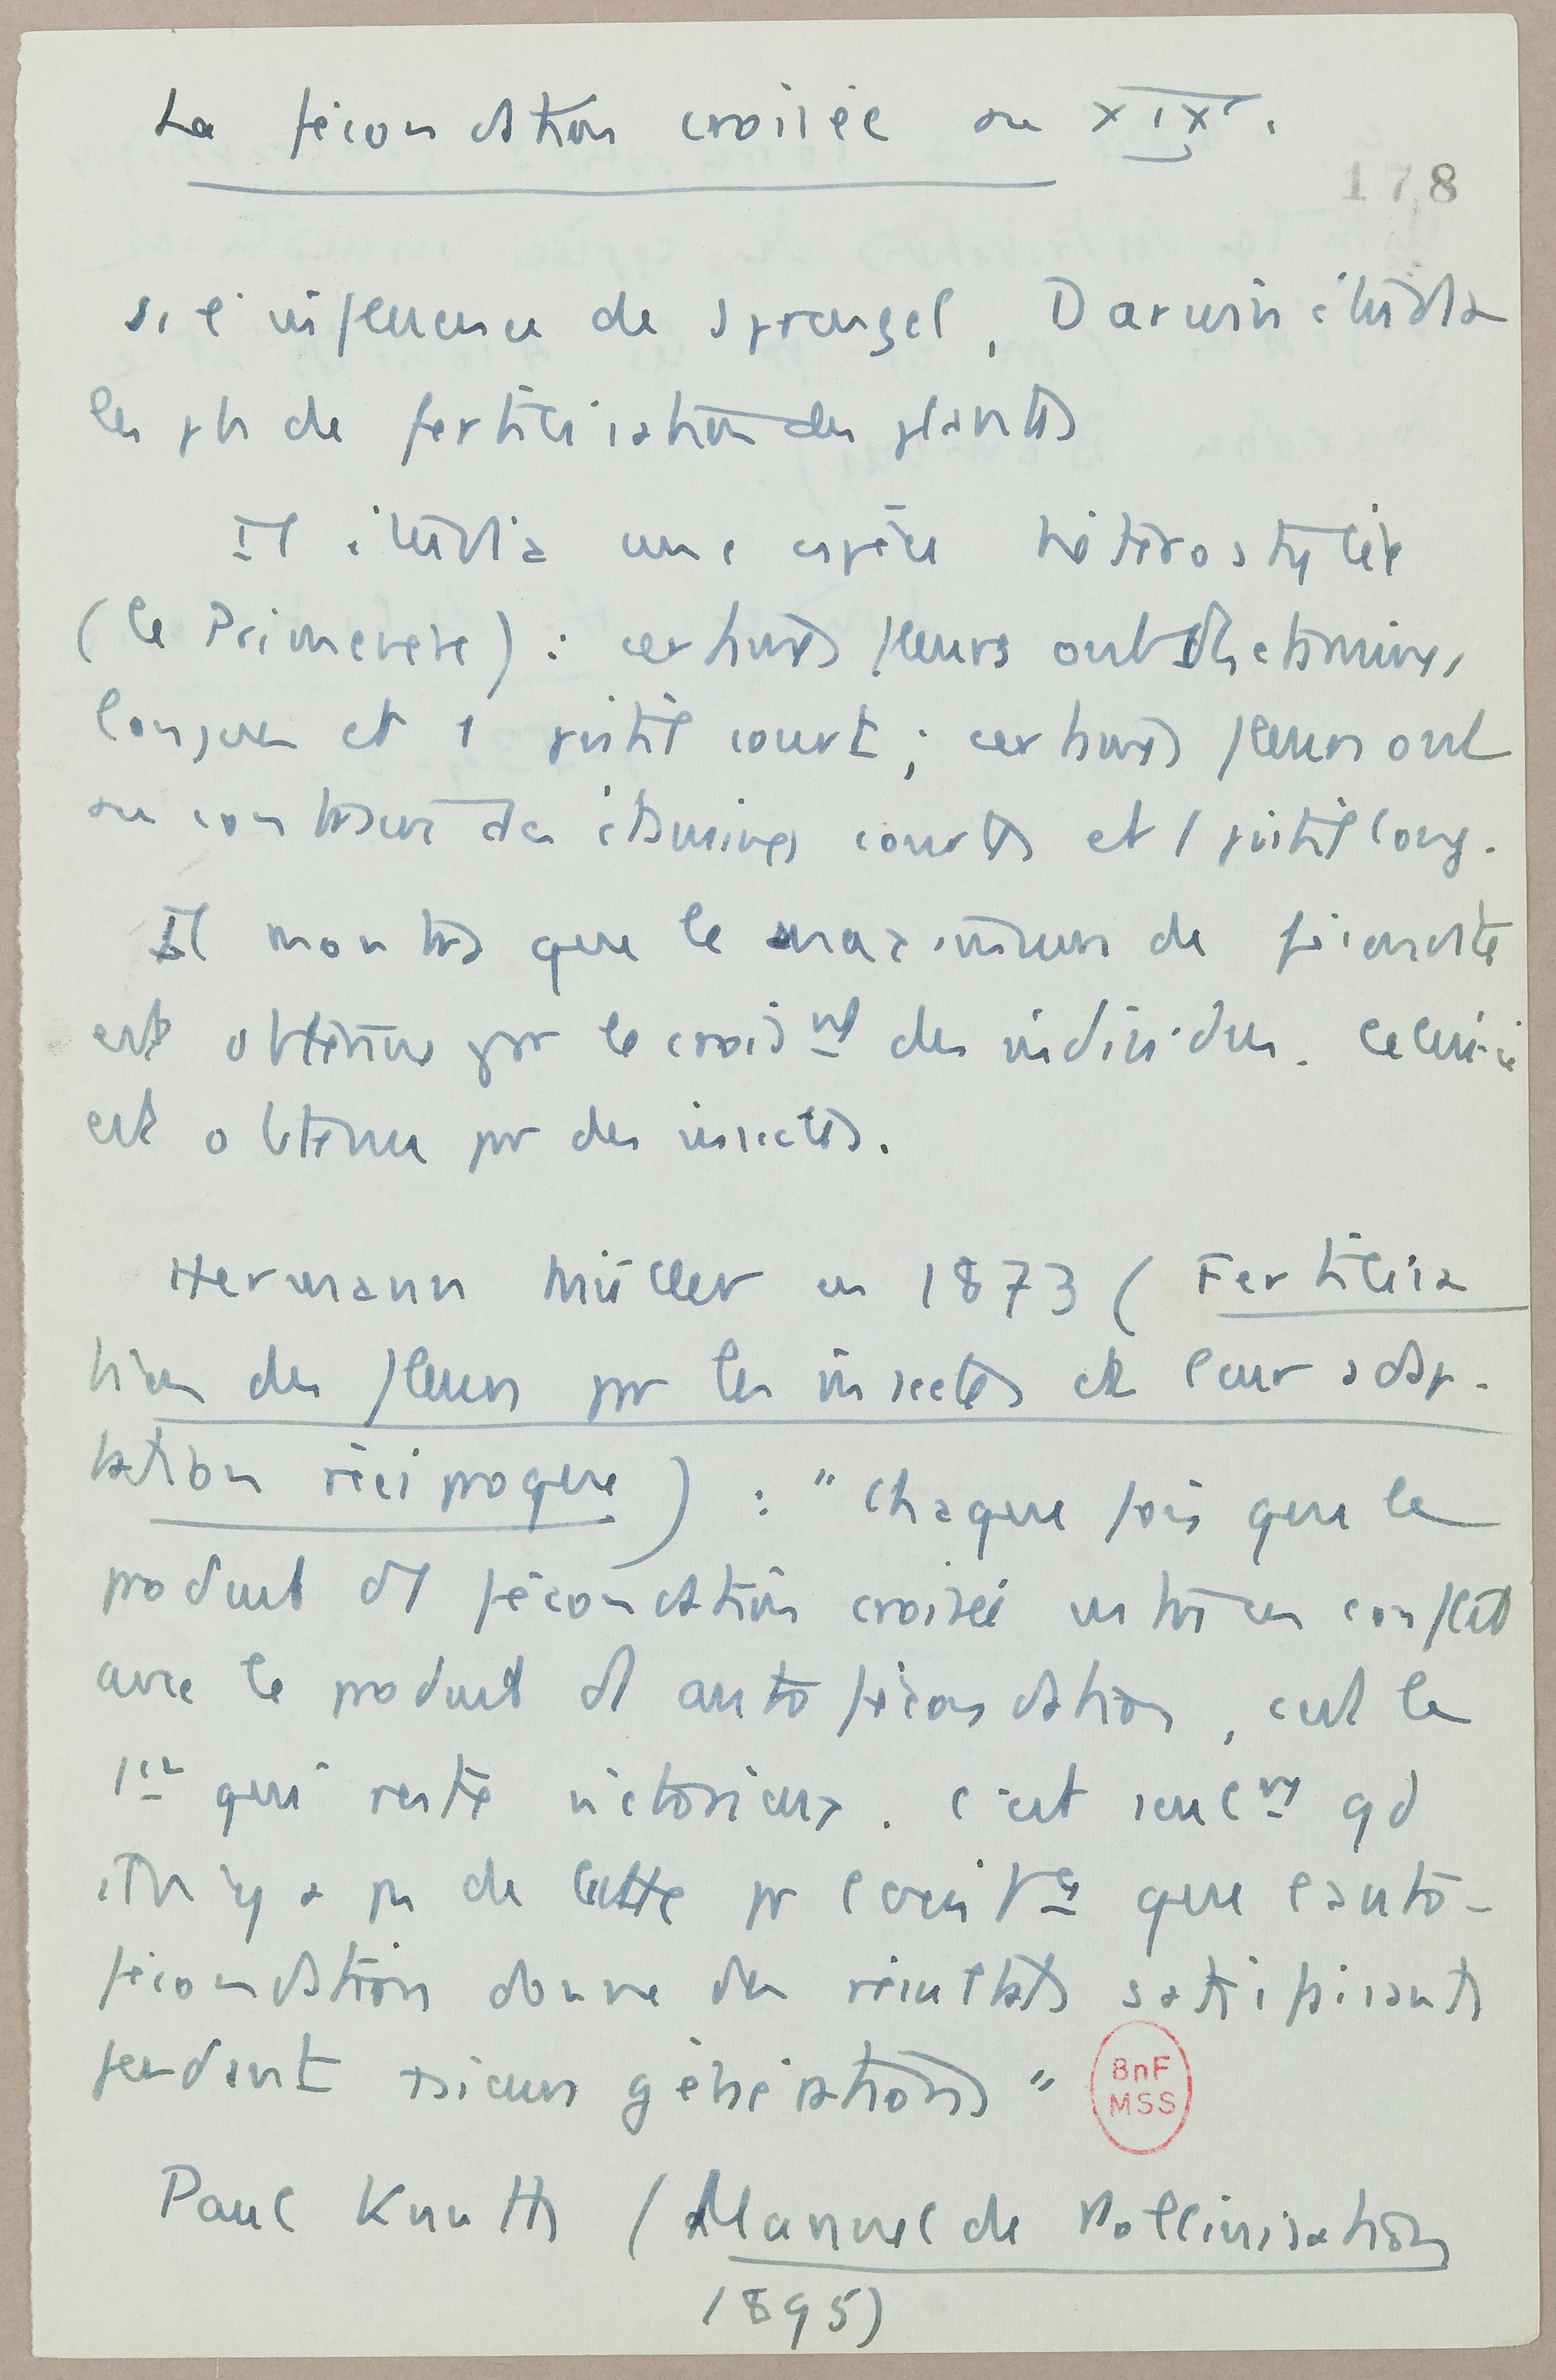 La fécondation croisée au XIXe.
178
s. l'influence de Sprengel, Darwin étudia
les ph de fertilisation des plantes
Il étudia une espèce hétérostylée
(la Primevère) : certaines fleurs ont des étamines
longues et 1 pistil court ; certaines fleurs ont
au contraire des étamines courtes et 1 pistil long.
Il montra que le maximum de fécondité
est obtenue par le croismt des individus. Celui-ci
est obtenu par des insectes.
Hermann Müller en 1873 ( Fertilisa
tion des fleurs par les insectes et leur adap-
tation réciproque ) : " Chaque fois que le
produit d1 fécondation croisée entre en conflit
avec le produit d1 autofécondation, c'est le
1er qui reste victorieux. C'est seulmt qd
il n'y a pas de lutte pr l'existce que l'auto-
fécondation donne des résultats satisfaisants
pendant +sieurs générations "
BnF
MSS
Paul Knuth (Manuel de Pollinisation
1895)